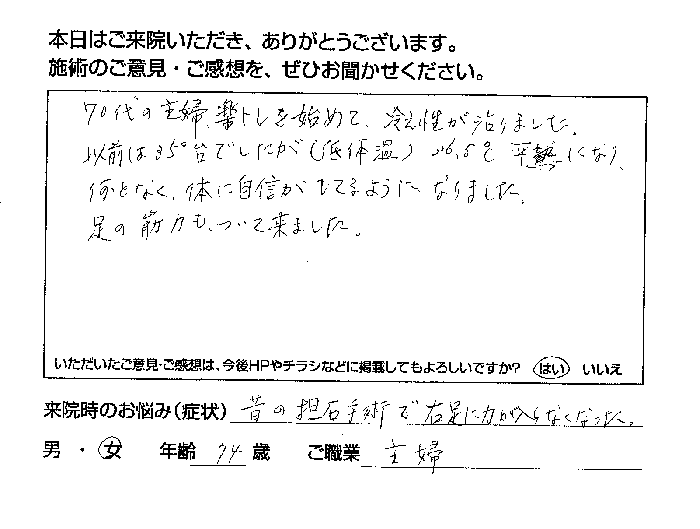 本日はご来院いただき、ありがとうございます。
施術のご意見・ご感想を、ぜひお聞かせください。
70代の主婦、楽トレを始めて、冷え性が治りました。
以前は35°台でしたが(低体温)36.5℃平熱になり、
何となく、体に自信がもてるようになりました。
足の筋力も、ついて来ました。
いただいたご意見・ご感想は、今後HPやチラシなどに掲載してもよろしいですか? はい いいえ
来院時のお悩み(症状) 昔の担石手術で右足に力が入らなくなった。
男・女 年齢 74 歳 ご職業 主婦